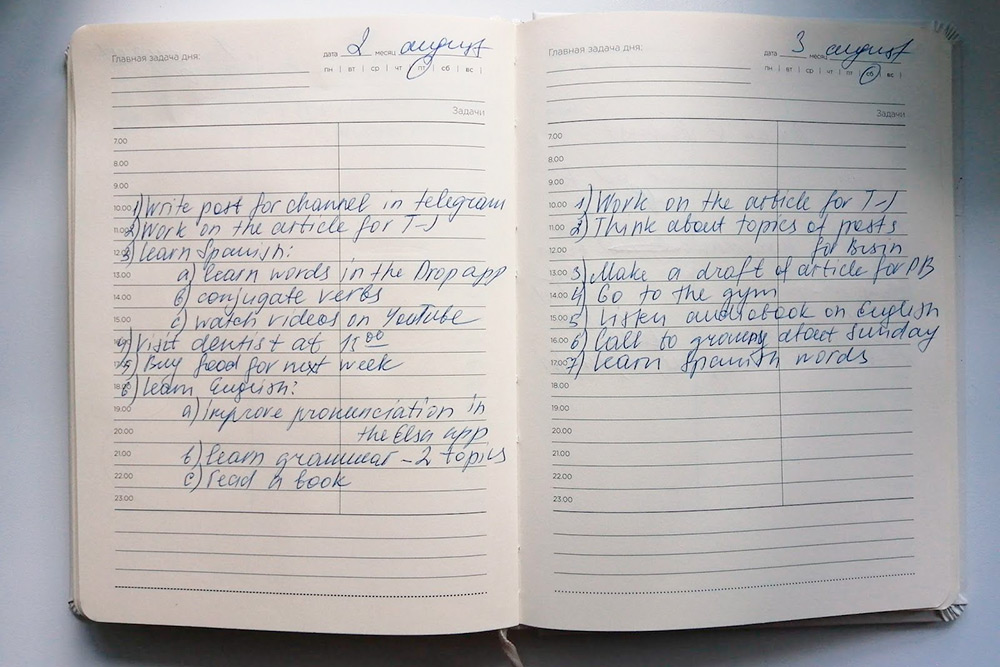 Главная задача дня:
дата 2 месяц august
пн | вт | ср | чт | пт | сб | вс |
Задачи
7.00
8.00
9.00
10.00 1) Write post for channel in telegram
11.00 2) Work on the article for T-J
12.00 3) Learn Spanish:
13.00 a) learn words in the Drop app
14.00 b) conjugate verbs
15.00 c) watch videos on YouTube
16.00 4) Visit dentist at 15 00
17.00 5) Buy food for next week
18.00 6) Learn English:
19.00 a) improve pronunciation in
20.00 the Elsa app
21.00 b) learn grammar - 2 topics
22.00 c) read a book
23.00
Главная задача дня:
дата 3 месяц august
пн | вт | ср | чт | пт | сб | вс |
Задачи
7.00
8.00
9.00
10.00 1) Work on the article for T-J
11.00 2) Think about topics of posts
12.00 for
13.00 3) Make a draft of article for
14.00 4) Go to the gym
15.00 5) Listen audiobook on English
16.00 6) Call to about Sunday
17.00 7) Learn Spanish words
18.00
19.00
20.00
21.00
22.00
23.00